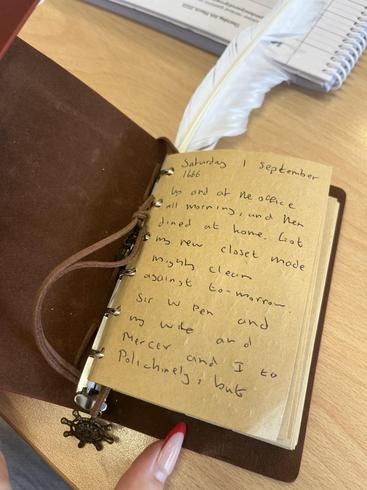 Saturday 1 September
1666
Up and at the office
all morning, and then
dined at home. Got
my new closet made
mighty clean
against to-morrow.
Sir W Pen and
my wife and
Mercer and I to
Polichinely, but